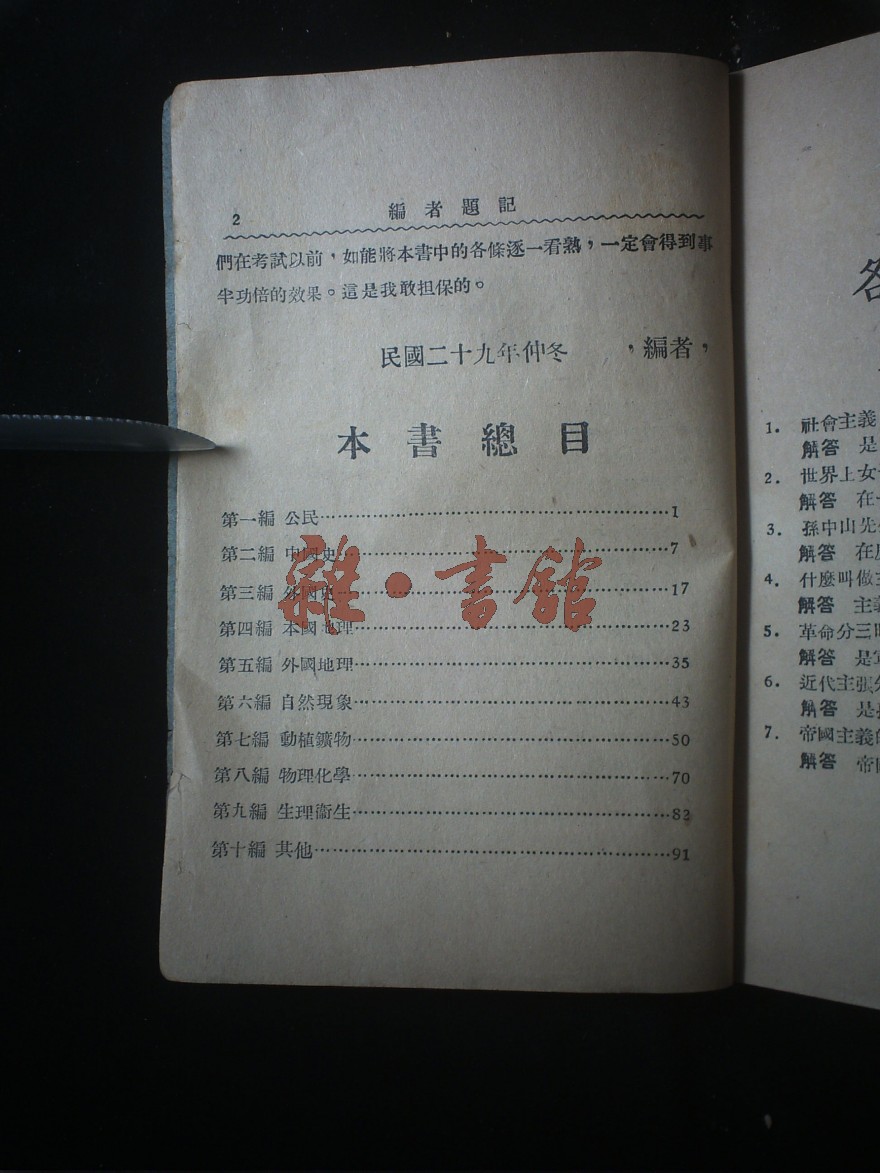 2
編者題記
們在考試以前，如能將本書中的各條逐一看熟，一定會得到事
半功倍的效果。這是我敢担保的。
民國二十九年仲冬 ，編者，
本書總目
第一編 公民……1
第二編 中國史……7
第三編 外國史……17
第四編 本國地理……23
第五編 外國地理……35
第六編 自然現象……43
第七編 動植鑛物……50
第八編 物理化學……70
第九編 生理衞生……82
第十編 其他……91
雜·書館
1. 社會主義
解答 是
2. 世界上女
解答 在
3. 孫中山先
解答 在
4. 什麼叫做
解答 主義
5. 革命分三
解答 是
6. 近代主張
解答 是
7. 帝國主義
解答 帝